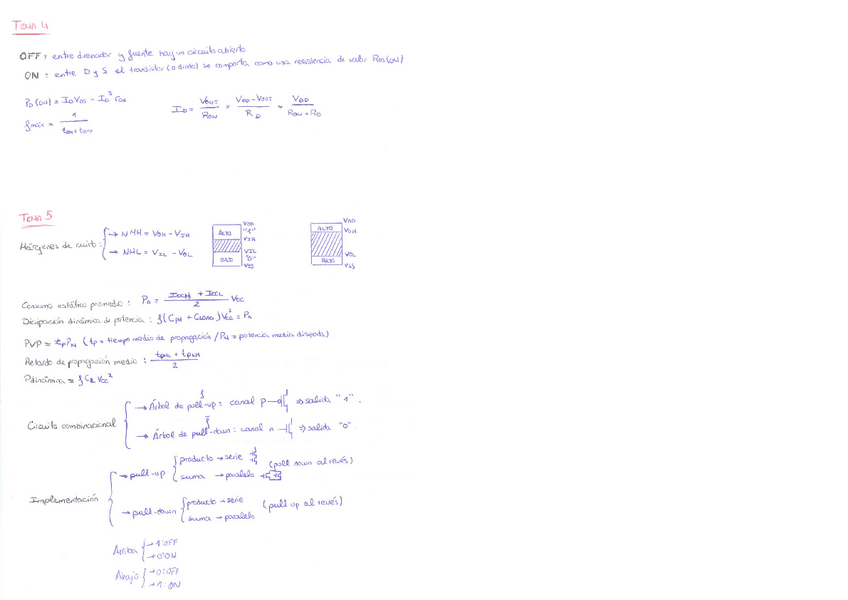 TEMA 4
OFF: entre drenador y fuente hay un circuito abierto
ON: entre D y S el transistor (o diodo) se comporta como una resistencia de valor RDS(ON)
PD(ON) = ID VDS = ID² rON
fmáx = 1 / (tON + tOFF)
ID = VOUT / RON = (VDD - VOUT) / RD = VDD / (RON + RD)
TEMA 5
Márgenes de ruido:
→ NMH = VOH - VIH
→ NML = VIL - VOL
VDD
ALTO "1"
VIH
VIL
BAJO "0"
VSS
VDD
ALTO VOH
VOL
BAJO VSS
Consumo estático promedio: PD = (ICCH + ICCL) / 2 VCC
Disipación dinámica de potencia: f(CPD + CLOAD)VCC² = PD
PVP = tp PM (tp = tiempo medio de propagación / PM = potencia media disipada)
Retardo de propagación medio: (tPHL + tPLH) / 2
Pdinámica = f CL VCC²
Circuito combinacional
→ Árbol de pull-up: canal p ⇒ salida "1".
→ Árbol de pull-down: canal n ⇒ salida "0".
Implementación
→ pull-up
producto → serie
suma → paralelo
(pull down al revés)
→ pull-down
producto → serie
suma → paralelo
(pull up al revés)
Arriba
→ 1: OFF
→ 0: ON
Abajo
→ 0: OFF
→ 1: ON